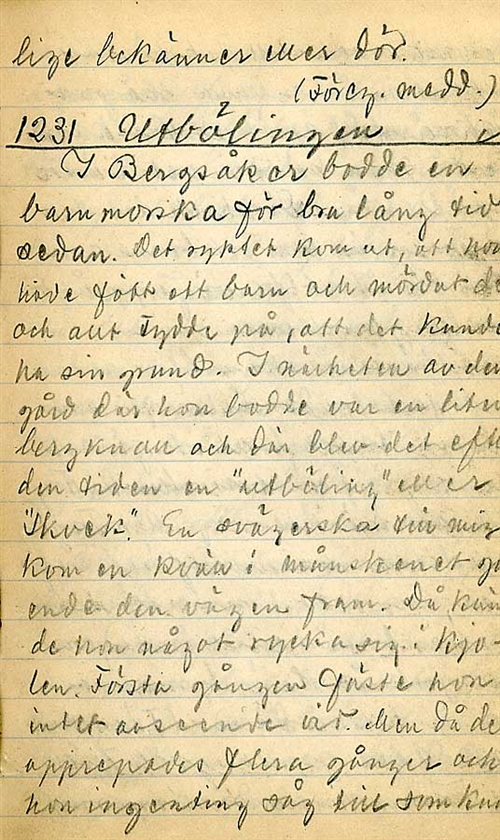 lige bekänner eller dör.
(Föreg. medd.)
1231 Utbölingen
I Bergsåker bodde en
barnmorska för bra lång tid
sedan. Det ryktet kom ut, att hon
hade fött ett barn och mördat de
och allt tydde på, att det kunde
ha sin grund. I närheten av den
gård där hon bodde var en liten
bergknall och där blev det efte
den tiden en "utböling" eller
"Skvek". En svägerska till mig
kom en kväll i månskenet gå
ende den vägen fram. Då kän
de hon något rycka sig i kjo-
len. Första gången fäste hon
intet avseende vid. Men då de
upprepades flera gånger och
hon ingenting såg till som kun